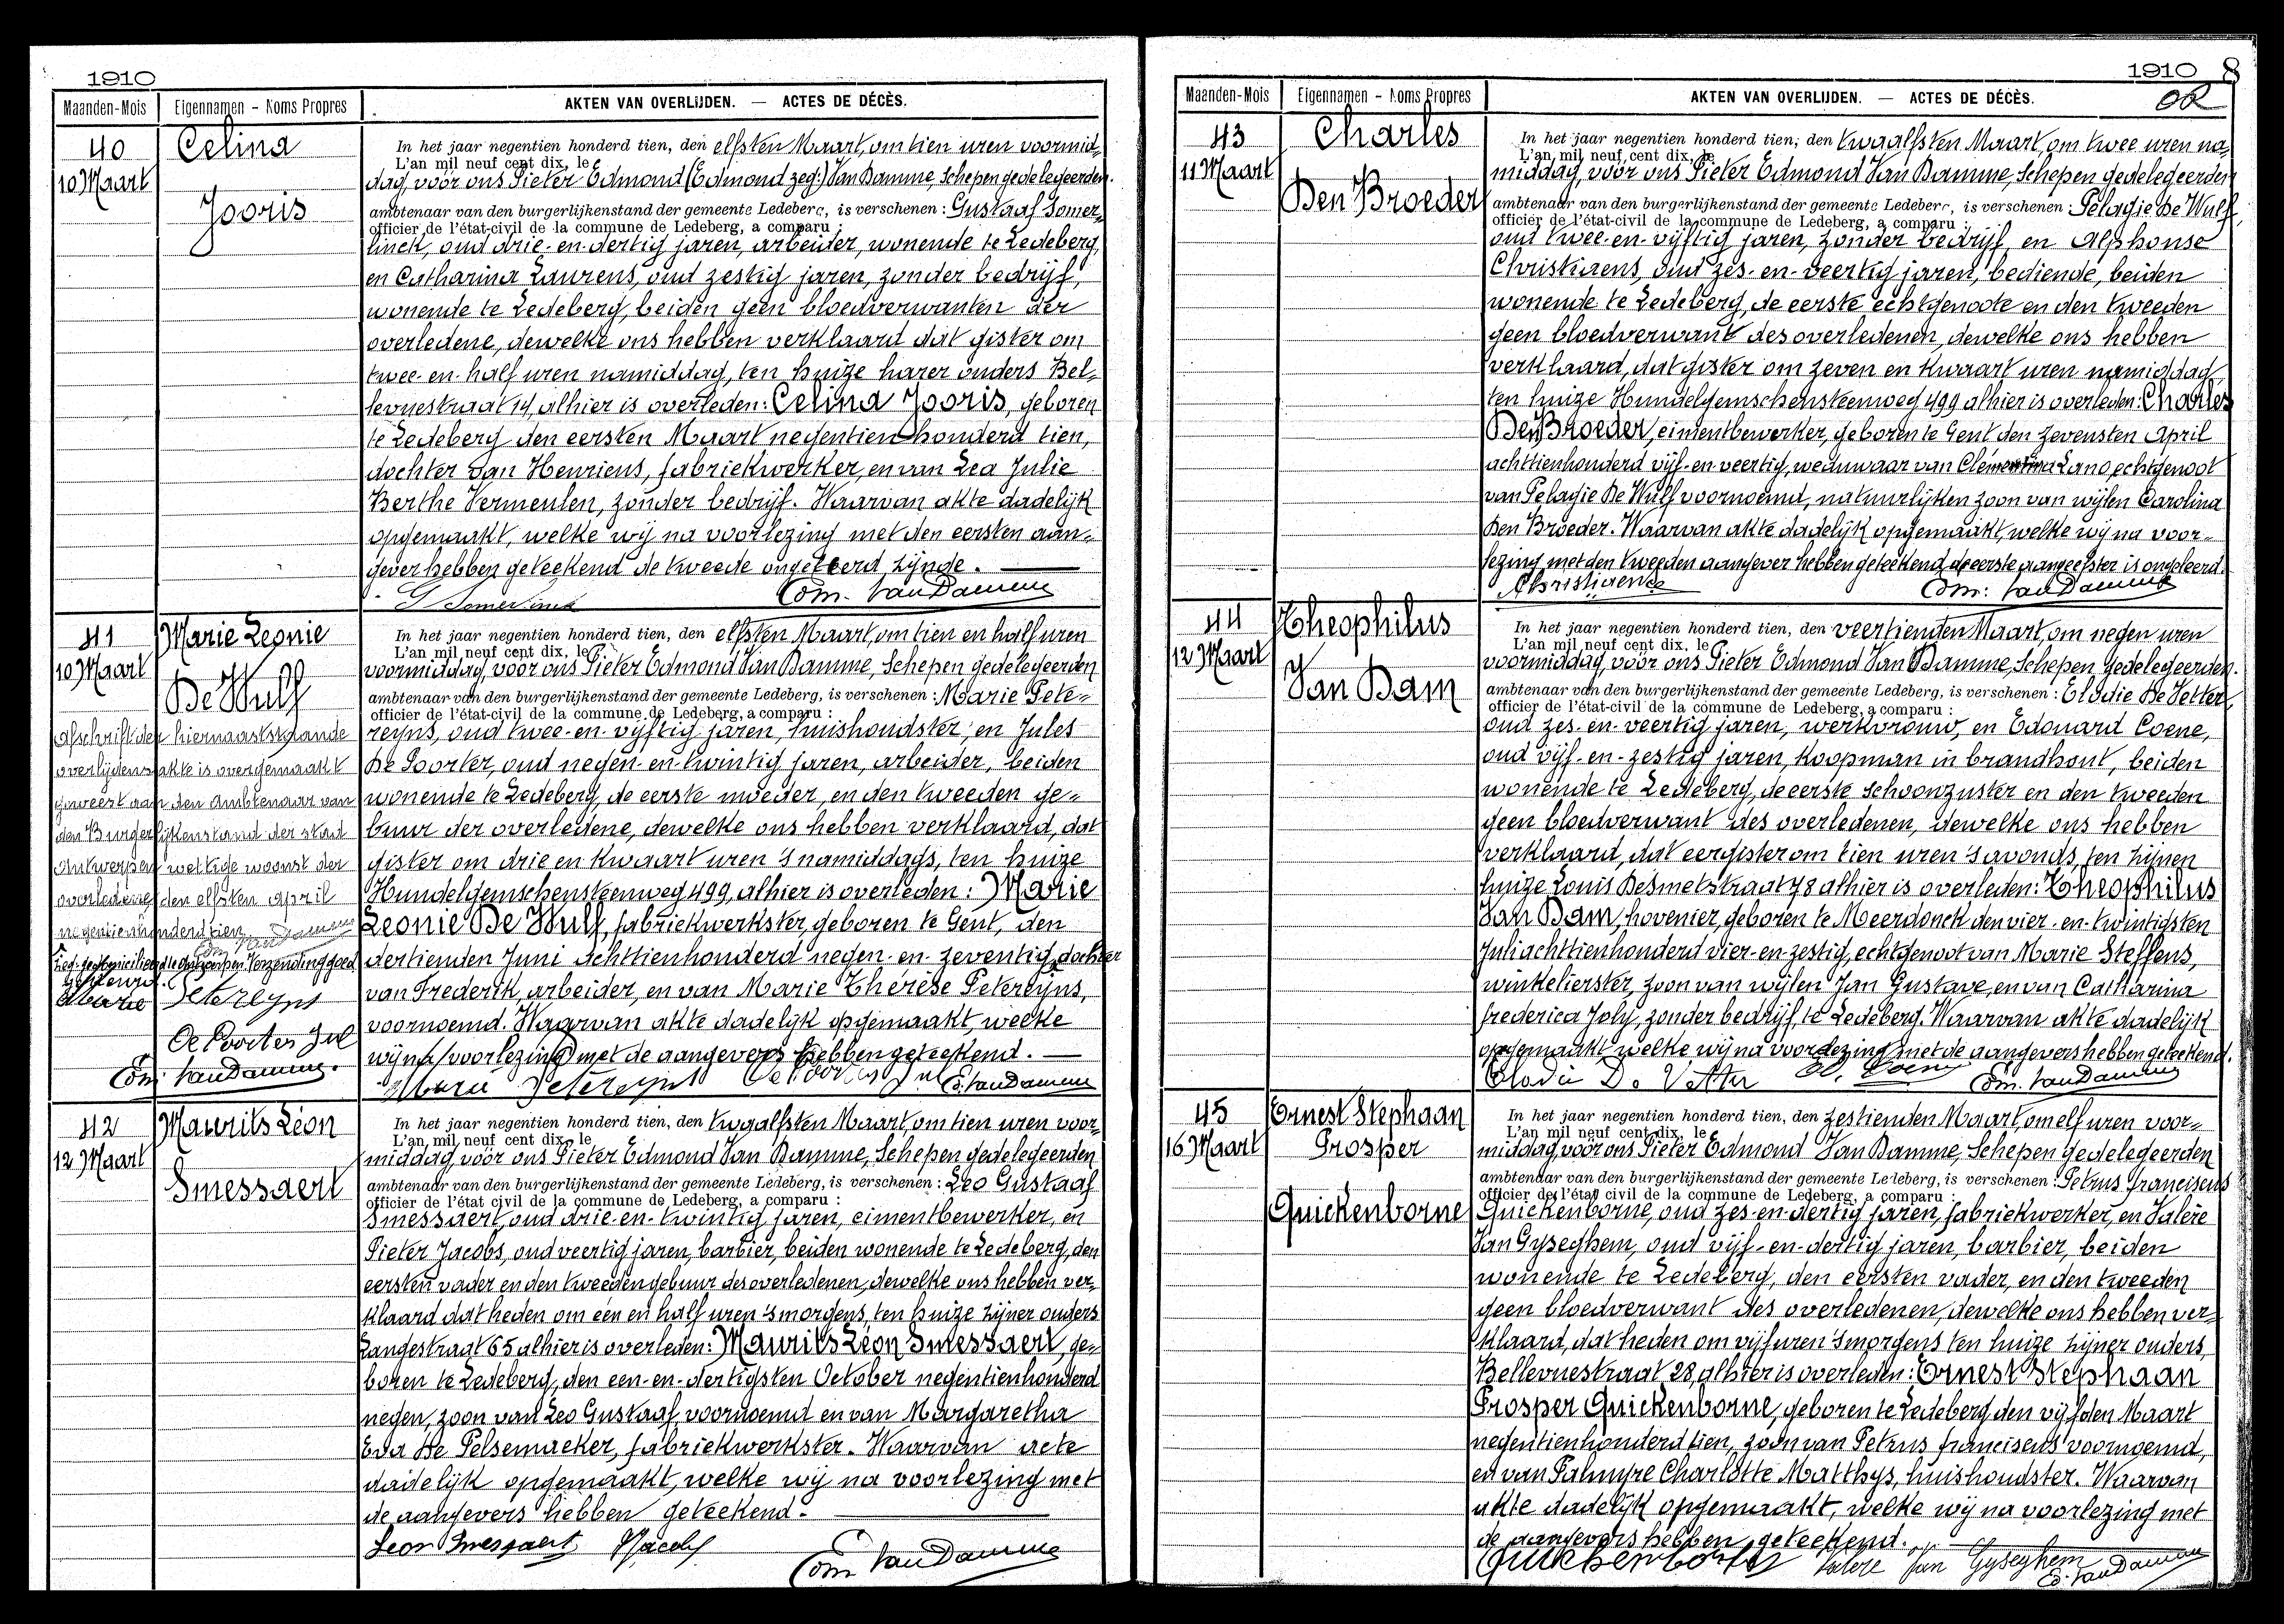 1910
Maanden-Mois Eigennamen - Noms Propres AKTEN VAN OVERLIJDEN. — ACTES DE DÉCÈS.
40 Celina
10 Maart
Jooris
In het jaar negentien honderd tien, den elfsten Maart, om tien uren voormid-
L'an mil neuf cent dix, le
dag, voor ons Pieter Edmond (Edmond zeg:) Van Damme, Schepen gedelegeerden
ambtenaar van den burgerlijkenstand der gemeente Ledeberg, is verschenen : Gustaaf Somer-
officier de l'état-civil de la commune de Ledeberg, a comparu :
linck, oud drie-en-dertig jaren, arbeider, wonende te Ledeberg,
en Catharina Laurens, oud zestig jaren, zonder bedrijf,
wonende te Ledeberg, beiden geen bloedverwanten der
overledene, dewelke ons hebben verklaard dat gister om
twee-en-half uren namiddag, ten huize harer ouders Bel-
levuestraat 14 alhier is overleden: Celina Jooris, geboren
te Ledeberg den eersten Maart negentien honderd tien,
dochter van Henricus, fabriekwerker, en van Lea Julie
Berthe Vermeulen, zonder bedrijf. Waarvan akte dadelijk
opgemaakt, welke wij na voorlezing met den eersten aan-
gever hebben geteekend de tweede ongeleerd zijnde.
G Somerlinck Edm. Van Damme
41 Marie Leonie
10 Maart
De Wulf
Afschrift der hiernaaststaande
overlijdensakte is overgemaakt
geweest aan den Ambtenaar van
den Burgerlijkenstand der stad
Antwerpen wettige woonst der
overledene, den elfsten April
negentienhonderd tien.
Edm Van Damme
Marie Petereyns
De Poorter Jul
Edm. Van Damme.
In het jaar negentien honderd tien, den elfsten Maart, om tien en half uren
L'an mil neuf cent dix, le
voormiddag, voor ons Pieter Edmond Van Damme, Schepen gedelegeerden
ambtenaar van den burgerlijkenstand der gemeente Ledeberg, is verschenen : Marie Pete-
officier de l'état-civil de la commune de Ledeberg, a comparu :
reyns, oud twee-en-vijftig jaren, huishoudster, en Jules
De Poorter, oud negen-en-twintig jaren, arbeider, beiden
wonende te Ledeberg, de eerste moeder, en den tweeden ge-
buur der overledene, dewelke ons hebben verklaard, dat
gister om drie en kwaart uren 's namiddags, ten huize
Hundelgemschensteenweg 499, alhier is overleden: Marie
Leonie De Wulf, fabriekwerkster, geboren te Gent, den
dertienden Juni achttienhonderd negen-en-zeventig, dochter
van Frederik, arbeider, en van Marie Thérèse Petereyns,
voornoemd. Waarvan akte dadelijk opgemaakt, welke
wij na voorlezing met de aangevers hebben geteekend.
Marie Petereyns De Poorter Jul E. Van Damme
42 Maurits Léon
12 Maart
Smessaert
In het jaar negentien honderd tien, den twaalfsten Maart, om tien uren voor-
L'an mil neuf cent dix, le
middag, voor ons Pieter Edmond Van Damme, Schepen gedelegeerden
ambtenaar van den burgerlijkenstand der gemeente Ledeberg, is verschenen : Leo Gustaaf
officier de l'état civil de la commune de Ledeberg, a comparu :
Smessaert, oud drie-en-twintig jaren, cimentbewerker, en
Pieter Jacobs, oud veertig jaren, barbier, beiden wonende te Ledeberg, den
eersten vader en den tweeden gebuur des overledenen, dewelke ons hebben ver-
klaard dat heden om één en half uren 's morgens, ten huize zijner ouders
Langestraat 65 alhier is overleden: Maurits Léon Smessaert, ge-
boren te Ledeberg, den een-en-dertigsten October negentienhonderd
negen, zoon van Leo Gustaaf, voornoemd en van Margaretha
Eva De Pelsemaeker, fabriekwerkster. Waarvan acte
dadelijk opgemaakt, welke wij na voorlezing met
de aangevers hebben geteekend.
Leon Smessaert PJacobs Edm Van Damme
1910 8
Maanden-Mois Eigennamen - Noms Propres AKTEN VAN OVERLIJDEN. — ACTES DE DÉCÈS.
43 Charles
11 Maart
Den Broeder
In het jaar negentien honderd tien, den twaalfsten Maart, om twee uren na-
L'an mil neuf cent dix, le
middag, voor ons Pieter Edmond Van Damme, Schepen gedelegeerden
ambtenaar van den burgerlijkenstand der gemeente Ledeberg, is verschenen : Pelagie De Wulf,
officier de l'état-civil de la commune de Ledeberg, a comparu :
oud twee-en-vijftig jaren, zonder bedrijf, en Alphonse
Christiaens, oud zes-en-veertig jaren, bediende, beiden
wonende te Ledeberg, de eerste echtgenoote en den tweeden
geen bloedverwant des overledenen, dewelke ons hebben
verklaard, dat gister om zeven en kwaart uren namiddag,
ten huize Hundelgemschensteenweg 499 alhier is overleden: Charles
Den Broeder, cimentbewerker, geboren te Gent den zevensten April
achttienhonderd vijf-en-veertig, weduwaar van Clementina Lano echtgenoot
van Pelagie De Wulf voornoemd, natuurlijken zoon van wijlen Carolina
Den Broeder. Waarvan akte dadelijk opgemaakt, welke wij na voor-
lezing met den tweeden aangever hebben geteekend, de eerste aangeefster is ongeleerd.
Christiaens Edm: Van Damme
44 Theophilus
12 Maart
Van Dam
In het jaar negentien honderd tien, den veertienden Maart, om negen uren
L'an mil neuf cent dix, le
voormiddag, voor ons Pieter Edmond Van Damme, Schepen gedelegeerden
ambtenaar van den burgerlijkenstand der gemeente Ledeberg, is verschenen : Elodie De Vetter,
officier de l'état-civil de la commune de Ledeberg, a comparu :
oud zes-en-veertig jaren, werkvrouw, en Edouard Coene,
oud vijf-en-zestig jaren, koopman in brandhout, beiden
wonende te Ledeberg, de eerste schoonzuster en den tweeden
geen bloedverwant des overledenen, dewelke ons hebben
verklaard, dat eergister om tien uren 's avonds, ten zijnen
huize Louis Desmetstraat 78 alhier is overleden: Theophilus
Van Dam, hovenier, geboren te Meerdonck den vier-en-twintigsten
Juli achttienhonderd vier-en-zestig, echtgenoot van Marie Steffens,
winkelierster, zoon van wijlen Jan Gustave, en van Catharina
frederica Joly, zonder bedrijf, te Ledeberg. Waarvan akte dadelijk
opgemaakt welke wij na voorlezing met de aangevers hebben geteekend.
Elodie De Vetter Ed. Coene Edm. Van Damme
45 Ernest Stephaan
16 Maart Prosper
Quickenborne
In het jaar negentien honderd tien, den zestienden Maart, om elf uren voor-
L'an mil neuf cent dix, le
middag, voor ons Pieter Edmond Van Damme, Schepen gedelegeerden
ambtenaar van den burgerlijkenstand der gemeente Ledeberg, is verschenen : Petrus Franciscus
officier de l'état civil de la commune de Ledeberg, a comparu :
Quickenborne, oud zes-en-dertig jaren, fabriekwerker, en Valère
Van Gyseghem, oud vijf-en-dertig jaren, barbier, beiden
wonende te Ledeberg, den eersten vader, en den tweeden
geen bloedverwant des overledenen, dewelke ons hebben ver-
klaard, dat heden om vijf uren 's morgens ten huize zijner ouders,
Bellevuestraat 28, alhier is overleden: Ernest Stephaan
Prosper Quickenborne, geboren te Ledeberg, den vijfden Maart
negentienhonderd tien, zoon van Petrus franciscus voornoemd,
en van Palmyre Charlotte Matthys, huishoudster. Waarvan
akte dadelijk opgemaakt, welke wij na voorlezing met
de aangevers hebben geteekend.
Quickenborne Valère Van Gyseghem E. Van Damme